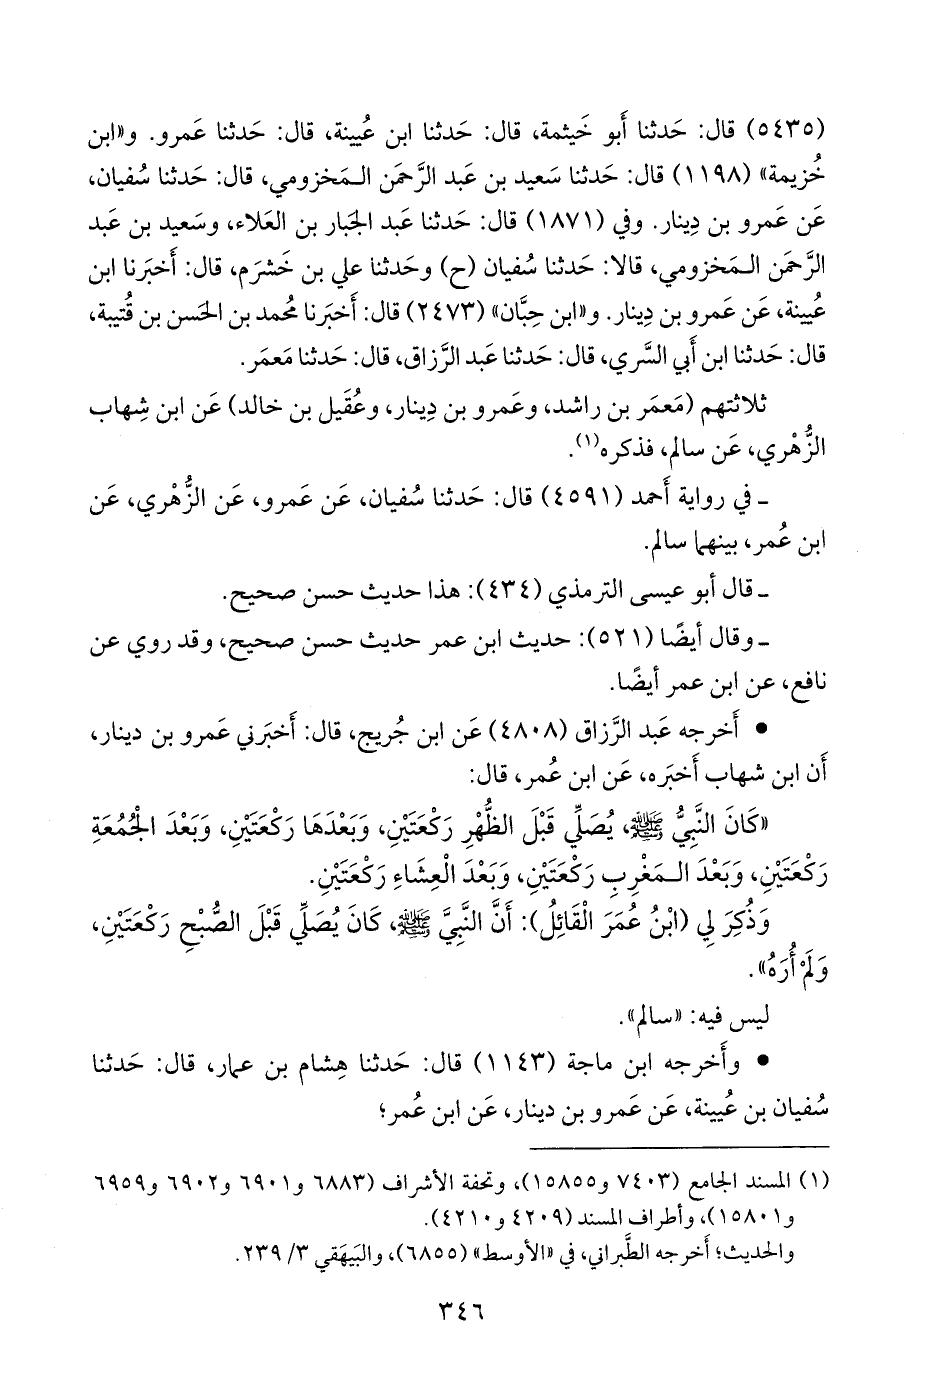 (٥٤٣٥) قال: حَدثنا أَبو خَيثمة، قال: حَدثنا ابن عُيينة، قال: حَدثنا عَمرو. و«ابن
خُزيمة» (١١٩٨) قال: حَدثنا سَعيد بن عَبد الرَّحمَن الـمَخزومي، قال: حَدثنا سُفيان،
عَن عَمرو بن دِينار. وفي (١٨٧١) قال: حَدثنا عَبد الجَبار بن العَلاء، وسَعيد بن عَبد
الرَّحمَن الـمَخزومي، قالا: حَدثنا سُفيان (ح) وحَدثنا علي بن خَشرَم، قال: أَخبَرنا ابن
عُيينة، عَن عَمرو بن دِينار. و«ابن حِبَّان» (٢٤٧٣) قال: أَخبَرنا مُحمد بن الحَسن بن قُتيبة،
قال: حَدثنا ابن أَبي السَّري، قال: حَدثنا عَبد الرَّزاق، قال: حَدثنا مَعمَر.
ثلاثتهم (مَعمَر بن راشد، وعَمرو بن دِينار، وعُقَيل بن خالد) عَن ابن شِهاب
الزُّهْري، عَن سالم، فذكره(١).
ـ في رواية أَحمد (٤٥٩١) قال: حَدثنا سُفيان، عَن عَمرو، عَن الزُّهْري، عَن
ابن عُمر، بينهما سالم.
ـ قال أَبو عيسى الترمذي (٤٣٤): هذا حديث حسن صحيح.
ـ وقال أَيضًا (٥٢١): حديث ابن عمر حديث حسن صحيح، وقد روي عن
نافع، عن ابن عمر أَيضًا.
• أَخرجه عَبد الرَّزاق (٤٨٠٨) عَن ابن جُريج، قال: أَخبَرني عَمرو بن دينار،
أَن ابن شهاب أَخبَره، عَن ابن عُمر، قال:
«كَانَ النَّبِيُّ ﷺ، يُصَلِّي قَبْلَ الظُّهْرِ رَكْعَتَيْنِ، وَبَعْدَهَا رَكْعَتَيْنِ، وَبَعْدَ الْجُمُعَةِ
رَكْعَتَيْنِ، وَبَعْدَ الـمَغْرِبِ رَكْعَتَيْنِ، وَبَعْدَ الْعِشَاءِ رَكْعَتَيْنِ.
وَذُكِرَ لِي (ابْنُ عُمَرَ الْقَائِلُ): أَنَّ النَّبِيَّ ﷺ، كَانَ يُصَلِّي قَبْلَ الصُّبْحِ رَكْعَتَيْنِ،
وَلَمْ أُرَهُ».
ليس فيه: «سالم».
• وأَخرجه ابن ماجة (١١٤٣) قال: حَدثنا هِشام بن عمار، قال: حَدثنا
سُفيان بن عُيينة، عَن عَمرو بن دينار، عَن ابن عُمر؛
(١) المسند الجامع (٧٤٠٣ و١٥٨٥٥)، وتحفة الأشراف (٦٨٨٣ و٦٩٠١ و٦٩٠٢ و٦٩٥٩
و١٥٨٠١)، وأطراف المسند (٤٢٠٩ و٤٢١٠).
والحديث؛ أَخرجه الطَّبراني، في «الأوسط» (٦٨٥٥)، والبَيهَقي ٣/ ٢٣٩.
٣٤٦